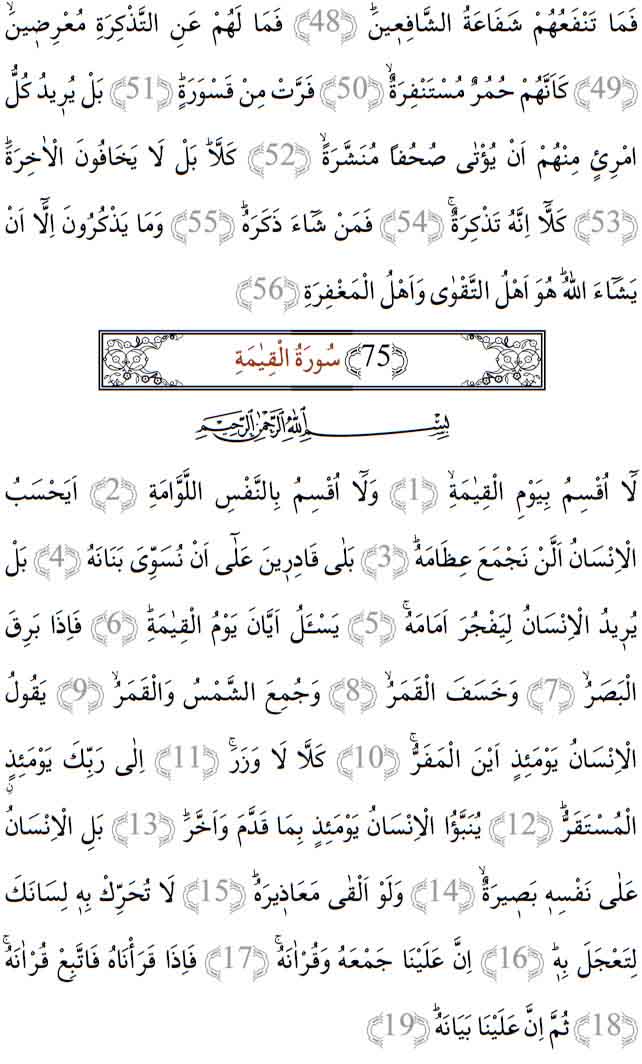 فَمَا تَنْفَعُهُمْ شَفَاعَةُ الشَّافِع۪ينَۜ ﴿48﴾ فَمَا لَهُمْ عَنِ التَّذْكِرَةِ مُعْرِض۪ينَۙ
﴿49﴾ كَاَنَّهُمْ حُمُرٌ مُسْتَنْفِرَةٌۙ ﴿50﴾ فَرَّتْ مِنْ قَسْوَرَةٍۜ ﴿51﴾ بَلْ يُر۪يدُ كُلُّ
امْرِئٍ مِنْهُمْ اَنْ يُؤْتٰى صُحُفاً مُنَشَّرَةًۙ ﴿52﴾ كَلَّاۜ بَلْ لَا يَخَافُونَ الْاٰخِرَةَۜ
﴿53﴾ كَلَّٓا اِنَّهُ تَذْكِرَةٌۚ ﴿54﴾ فَمَنْ شَٓاءَ ذَكَرَهُۜ ﴿55﴾ وَمَا يَذْكُرُونَ اِلَّٓا اَنْ
يَشَٓاءَ اللّٰهُۜ هُوَ اَهْلُ التَّقْوٰى وَاَهْلُ الْمَغْفِرَةِ ﴿56﴾
﴿75﴾ سُورَةُ الْقِيٰمَةِ
بِسْمِ اللّٰهِ الرَّحْمٰنِ الرَّحِيمِ
لَٓا اُقْسِمُ بِيَوْمِ الْقِيٰمَةِۙ ﴿1﴾ وَلَٓا اُقْسِمُ بِالنَّفْسِ اللَّوَّامَةِ ﴿2﴾ اَيَحْسَبُ
الْاِنْسَانُ اَلَّنْ نَجْمَعَ عِظَامَهُۜ ﴿3﴾ بَلٰى قَادِر۪ينَ عَلٰٓى اَنْ نُسَوِّيَ بَنَانَهُ ﴿4﴾ بَلْ
يُر۪يدُ الْاِنْسَانُ لِيَفْجُرَ اَمَامَهُۚ ﴿5﴾ يَسْـَٔلُ اَيَّانَ يَوْمُ الْقِيٰمَةِۜ ﴿6﴾ فَاِذَا بَرِقَ
الْبَصَرُۙ ﴿7﴾ وَخَسَفَ الْقَمَرُۙ ﴿8﴾ وَجُمِعَ الشَّمْسُ وَالْقَمَرُۙ ﴿9﴾ يَقُولُ
الْاِنْسَانُ يَوْمَئِذٍ اَيْنَ الْمَفَرُّۚ ﴿10﴾ كَلَّا لَا وَزَرَۜ ﴿11﴾ اِلٰى رَبِّكَ يَوْمَئِذٍۨ
الْمُسْتَقَرُّۜ ﴿12﴾ يُنَبَّؤُا الْاِنْسَانُ يَوْمَئِذٍ بِمَا قَدَّمَ وَاَخَّرَۜ ﴿13﴾ بَلِ الْاِنْسَانُ
عَلٰى نَفْسِه۪ بَص۪يرَةٌۙ ﴿14﴾ وَلَوْ اَلْقٰى مَعَاذ۪يرَهُۜ ﴿15﴾ لَا تُحَرِّكْ بِه۪ لِسَانَكَ
لِتَعْجَلَ بِه۪ۜ ﴿16﴾ اِنَّ عَلَيْنَا جَمْعَهُ وَقُرْاٰنَهُۚ ﴿17﴾ فَاِذَا قَرَأْنَاهُ فَاتَّبِعْ قُرْاٰنَهُۚ
﴿18﴾ ثُمَّ اِنَّ عَلَيْنَا بَيَانَهُۜ ﴿19﴾